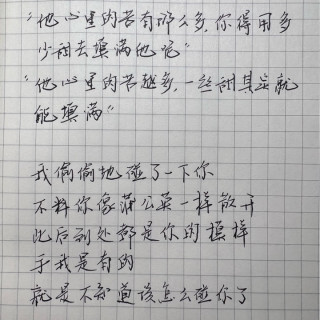 “他心里的苦有那么多,你得用多
少甜去填满他呢”
“他心里的苦越多,一丝甜其实就
能填满”
我偷偷地碰了一下你
不料你像蒲公英一样散开
此后到处都是你的模样
手我是有的
就是不知道该怎么碰你了